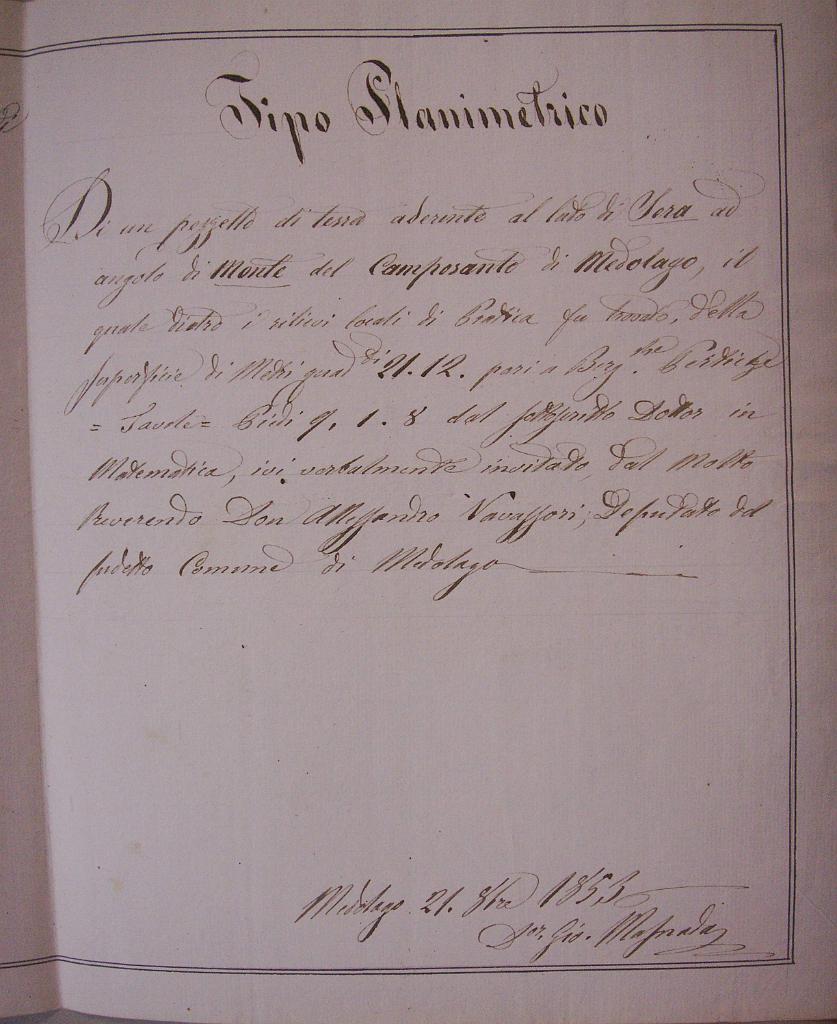 Tipo Planimetrico
Di un pezzetto di terra aderente al lato di Sera ad
angolo di Monte del Camposanto di Medolago, il
quale dietro i rilievi locali di Pratica fu trovato, della
superficie di Metri quad.ti 21.12. pari a Berg.che Pertiche
= Tavole = Piedi 9, 1. 8 dal sottoscritto Dottor in
Matematica, ivi verbalmente invitato, dal Molto
Reverendo Don Alessandro Vavassori, Deputato del
sudetto Comune di Medolago
Medolago 21. 8bre 1853
D.or Gio. Masnada